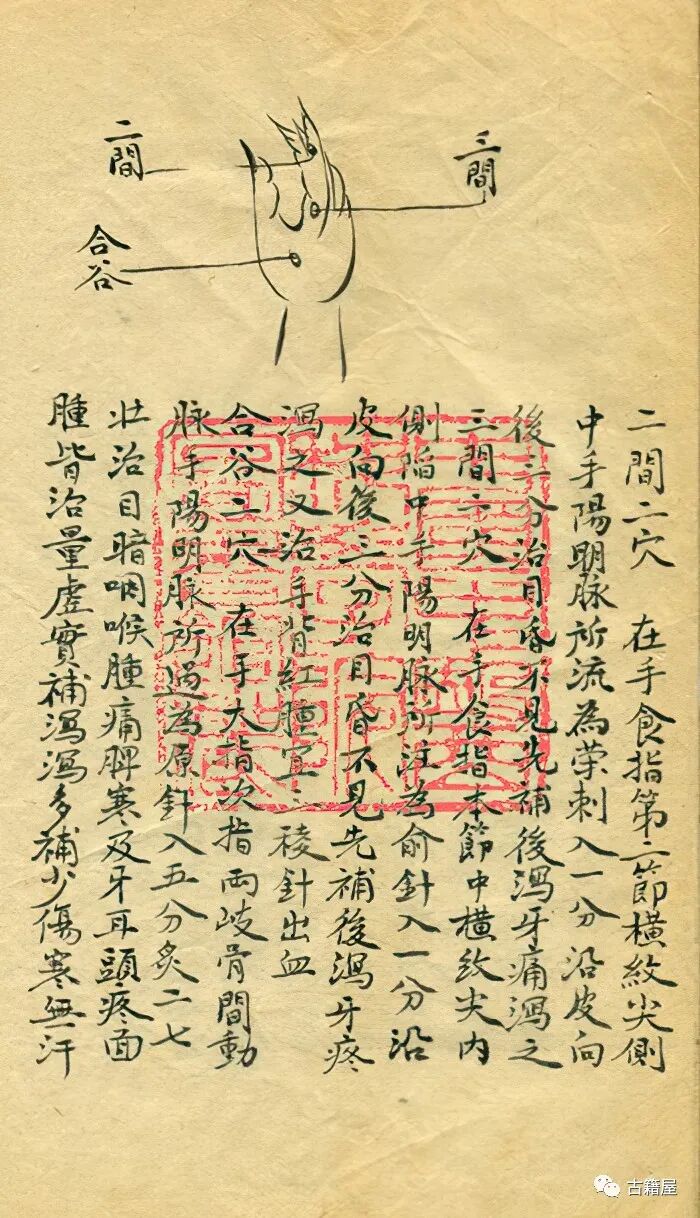 二間
三間
合谷
二間二穴　在手食指第二節橫紋尖側
中手陽明脉所流為荣刺入一分沿皮向
後三分治目昏不見先補後瀉牙痛瀉之
三間二穴　在手食指本節中橫紋尖内
側陷中手陽明脉所注為俞針入一分沿
皮向後三分治目昏不見先補後瀉牙疼
瀉之又治手背紅腫宜三稜針出血
合谷二穴　在手大指次指両歧骨間動
脉手陽明脉所過為原針入五分灸二七
壮治目暗咽喉腫痛脾寒及牙耳頭疼面
腫皆治量虚實補瀉瀉多補少傷寒無汗
古籍屋